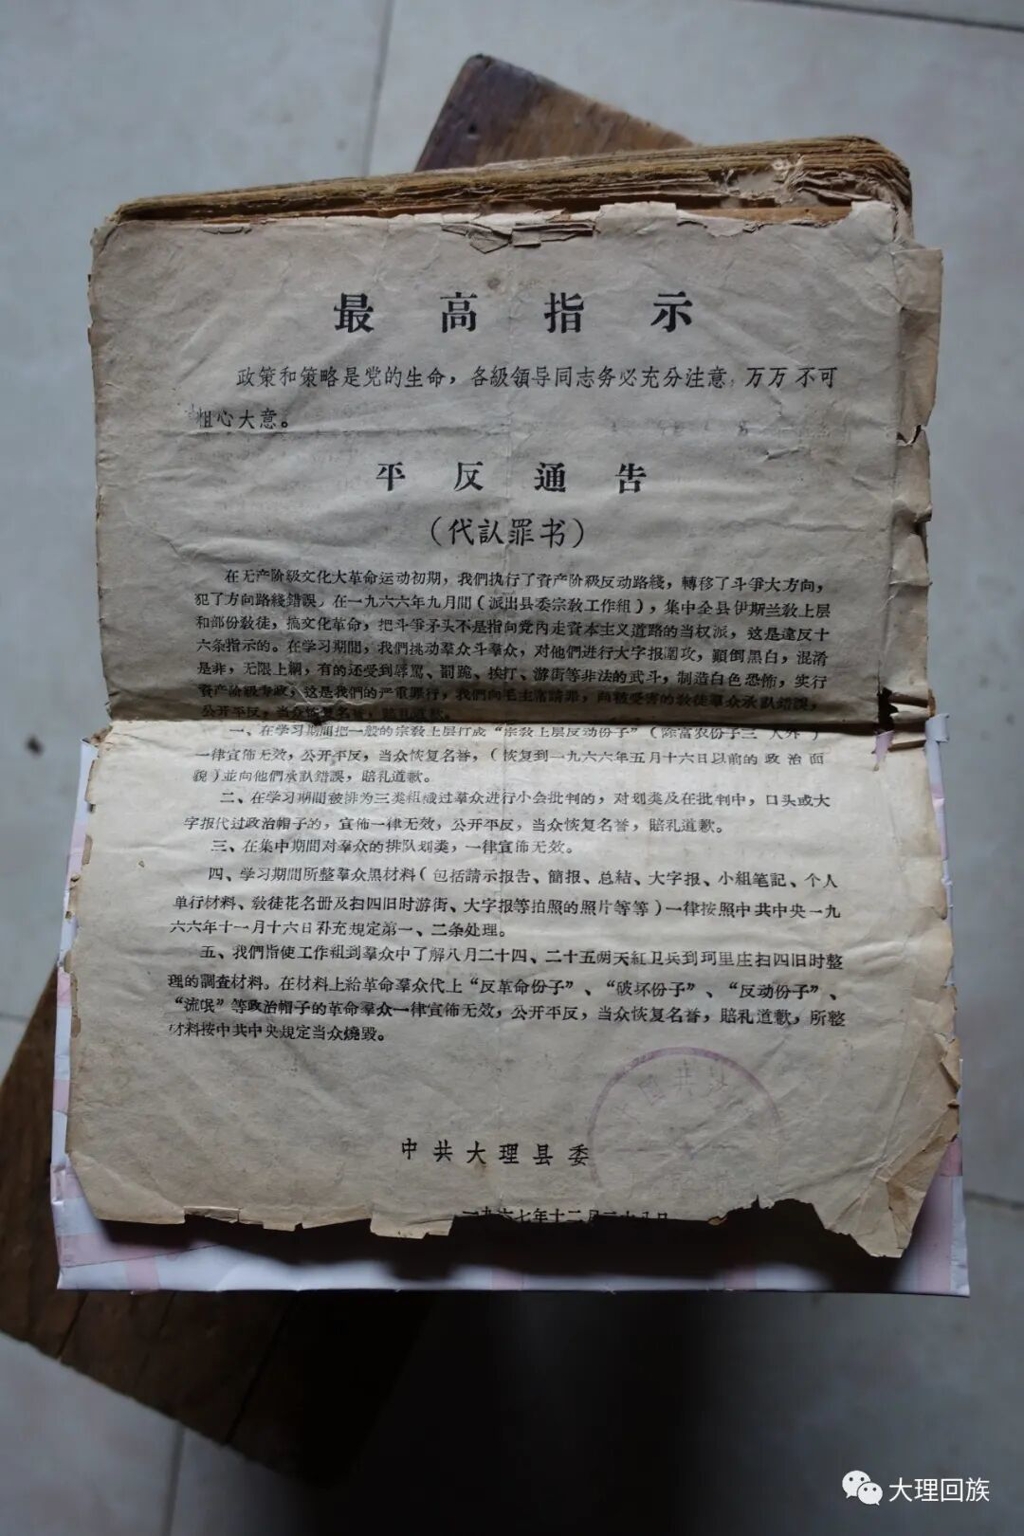 最高指示
政策和策略是党的生命，各級領导同志务必充分注意，万万不可
粗心大意。
平反通告
（代訞罪书）
在无产阶級文化大革命运动初期，我們执行了資产阶級反动路綫，轉移了斗爭大方向，
犯了方向路綫錯誤，在一九六六年九月間（派出县委宗敎工作組），集中全县伊斯兰敎上层
和部份敎徒，搞文化革命，把斗爭矛头不是指向党內走資本主义道路的当权派，这是違反十
六条指示的。在学习期間，我們挑动羣众斗羣众，对他們进行大字报圍攻，顚倒黑白，混淆
是非，无限上綱，有的还受到辱駡、罰跪、挨打、游街等非法的武斗，制造白色恐怖，实行
資产阶級专政，这是我們的严重罪行，我們向毛主席請罪，向被受害的敎徒羣众承訞錯誤，
公开平反，当众恢复名誉，賠礼道歉。
一、在学习期間把一般的宗敎上层打成“宗敎上层反动份子”（除富农份子三人外）
一律宣佈无效，公开平反，当众恢复名誉，（恢复到一九六六年五月十六日以前的政治面
貌）並向他們承訞錯誤，賠礼道歉。
二、在学习期間被排为三类組織过羣众进行小会批判的，对划类及在批判中，口头或大
字报代过政治帽子的，宣佈一律无效，公开平反，当众恢复名誉，賠礼道歉。
三、在集中期間对羣众的排队划类，一律宣佈无效。
四、学习期間所整羣众黑材料（包括請示报告、簡报、总結、大字报、小組笔記、个人
单行材料、敎徒花名册及扫四旧时游街、大字报等拍照的照片等等）一律按照中共中央一九
六六年十一月十六日补充規定第一、二条处理。
五、我們指使工作組到羣众中了解八月二十四、二十五两天紅卫兵到珂里庄扫四旧时整
理的調查材料。在材料上給革命羣众代上“反革命份子”、“破坏份子”、“反动份子”、
“流氓”等政治帽子的革命羣众一律宣佈无效，公开平反，当众恢复名誉，賠礼道歉，所整
材料按中共中央規定当众燒毁。
中共大理县委
一九六七年十二月二十八日
大理回族